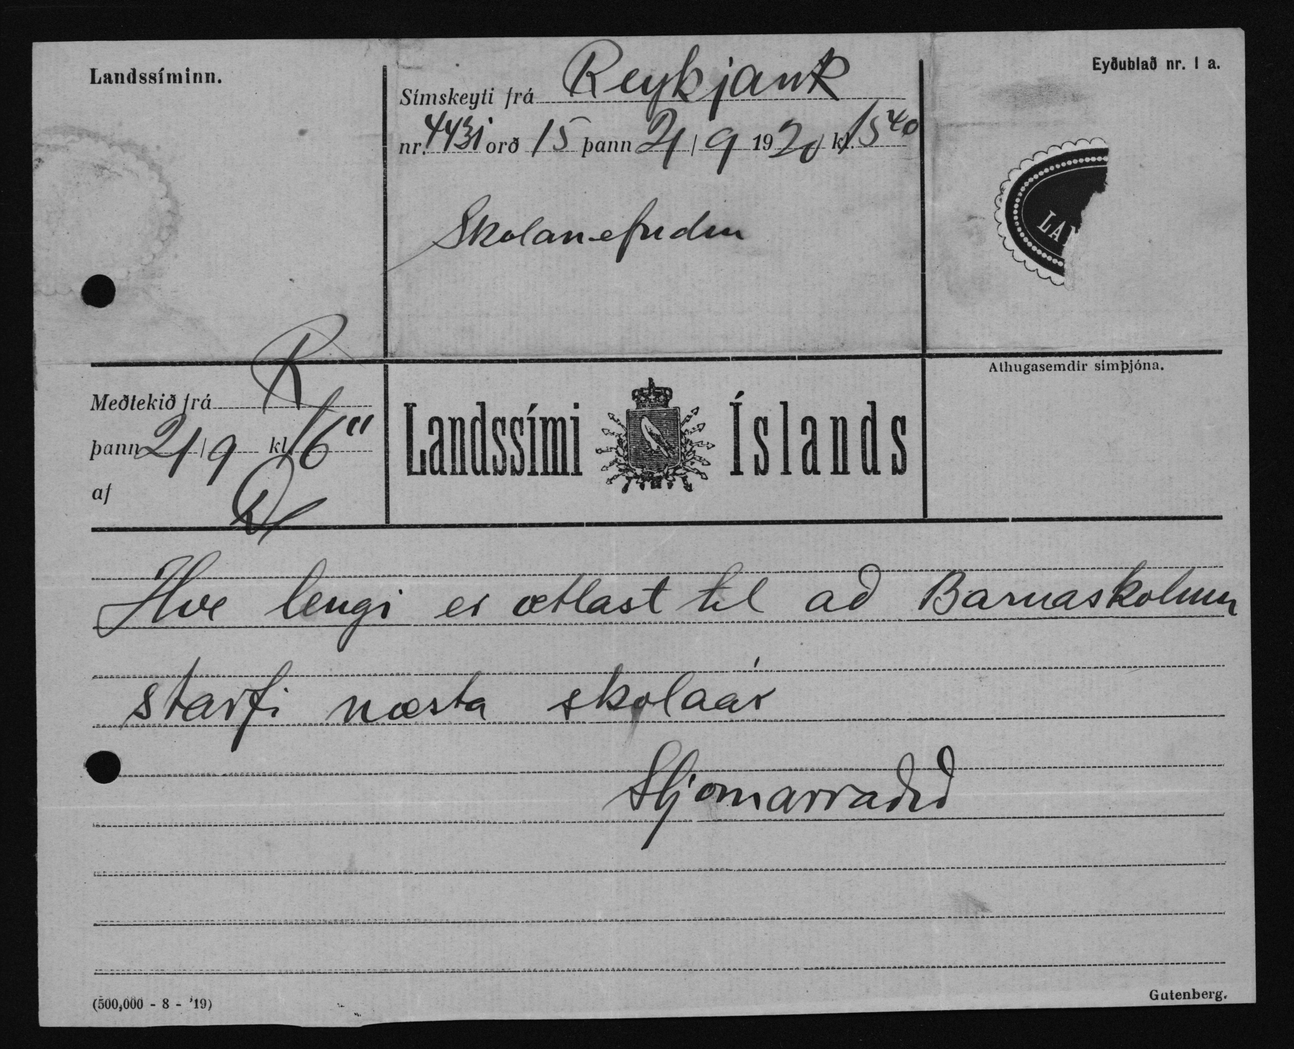 Landssíminn.
Eyðublað nr. 1 a.
Símskeyti frá Reykjavík
nr. 4431 orð 15 þann 21/9 1920 kl. 15 40
Skolanefndin
LA
Meðtekið frá R
þann 21/9 kl. 16
af
Landssími Íslands
Athugasemdir símþjóna.
Hve lengi er ætlast til að Barnaskolinn
starfi næsta skolaár
Stjornarradid
(500,000 - 8 - '19)
Gutenberg.